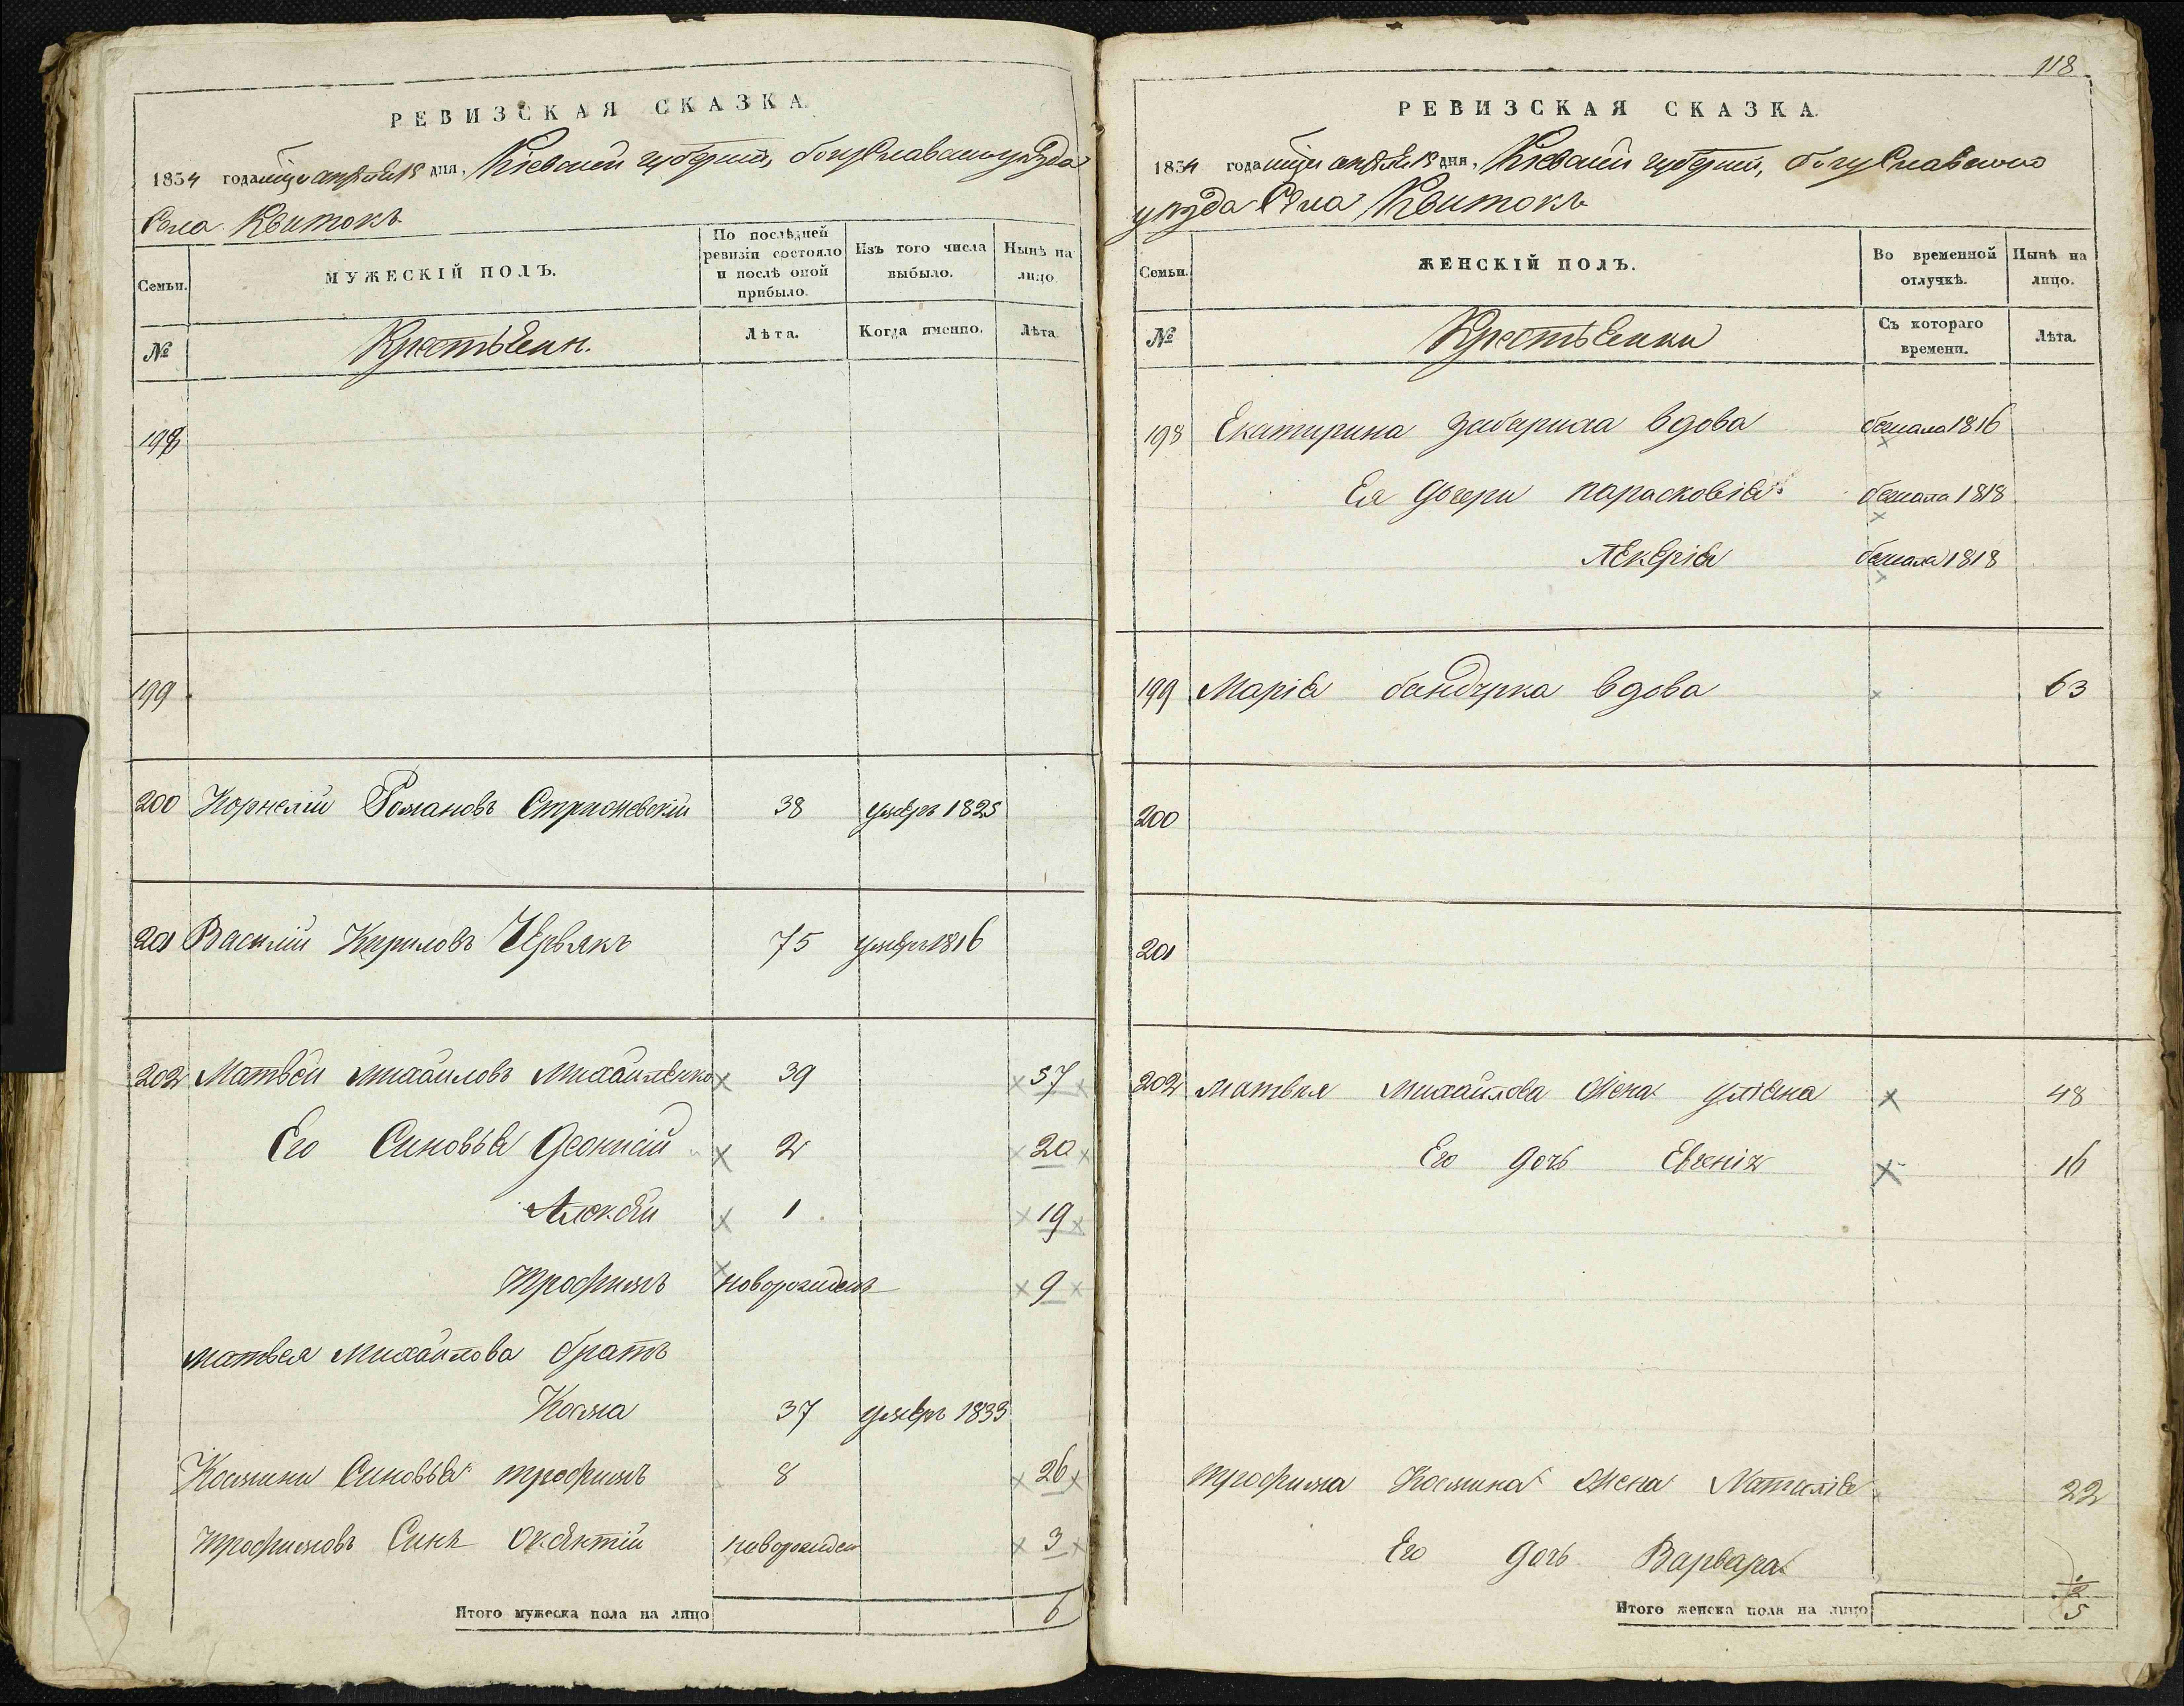 РЕВИЗСКАЯ СКАЗКА.
1834 года мѣсяца апрѣля дня, Кіевской губерніи, богуславского уѣзда
Села Квитокъ
Семьи.
МУЖЕСКІЙ ПОЛЪ.
По послѣдней ревизіи состояло и послѣ оной прибыло.
Изъ того числа выбыло.
Нынѣ на лицо.
№
Крестьѣяни.
Лѣта.
Когда именно.
Лѣта
198
199
200 Корнелій Романовъ 38 умеръ 1825
201 Василій Кириловъ Червякъ 75 умеръ 1816
202 Матвѣй михайловъ михайленко 39 37
Его Синовья Деонисій 2 20
Алексѣй 1 19
трофимъ новорожденъ 9
матвея михайлова братъ
Косма 37 умеръ 1833
Космини Синовья трофимъ 8 26
трофимовъ Синъ новорожден 3
Итого мужеска пола на лицо 6
118
РЕВИЗСКАЯ СКАЗКА.
1834 года мѣсяца апрѣля дня, Кіевской губерніи, богуславского
уѣзда Села Квитокъ
Семьи.
ЖЕНСКІЙ ПОЛЪ.
Во временной отлучкѣ.
Нынѣ на лицо.
№
Крестьянки
Съ котораго времени.
Лѣта.
198 Екатирина вдова бежала 1816
Ея дочери парасковія бежала 1818
Лекерія бежала 1818
199 Марія бандурка вдова 63
200
201
202 матвея михайлова жена уліяна 48
Его дочь Евгенія 16
трофима Космина жена Наталія 22
Его дочь Варвара 2
Итого женска пола на лицо 5